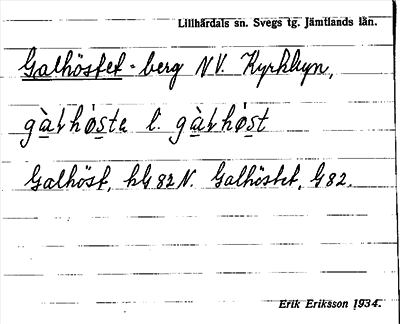 Lillhärdals sn. Svegs tg. Jämtlands län.
Galhöstet - berg NV. Kyrkbyn,
gàlhö̀sta l. gàlhö̀st
Galhöst, hG 82 N. Galhöstet, G 82.
Erik Eriksson 1934.